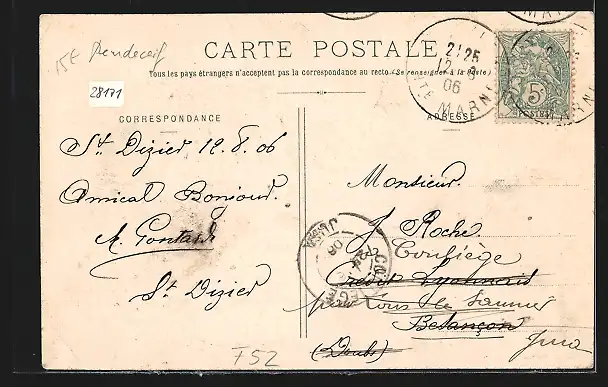 15E Pendeceif
CARTE POSTALE
Tous les pays étrangers n'acceptent pas la correspondance au recto (Se renseigner à la Poste)
28171
CORRESPONDANCE
ADRESSE
21 25
12 - 8
06
HTE MARNE
5c
POSTES
St Dizier 12. 8. 06
Amical Bonjour.
A. Gontard
St Dizier
Monsieur.
J. Roche
Confiège
Crédit Lyonnais
par Lons le Saunier
Besançon
(Doubs)
Jura
JURA
T52